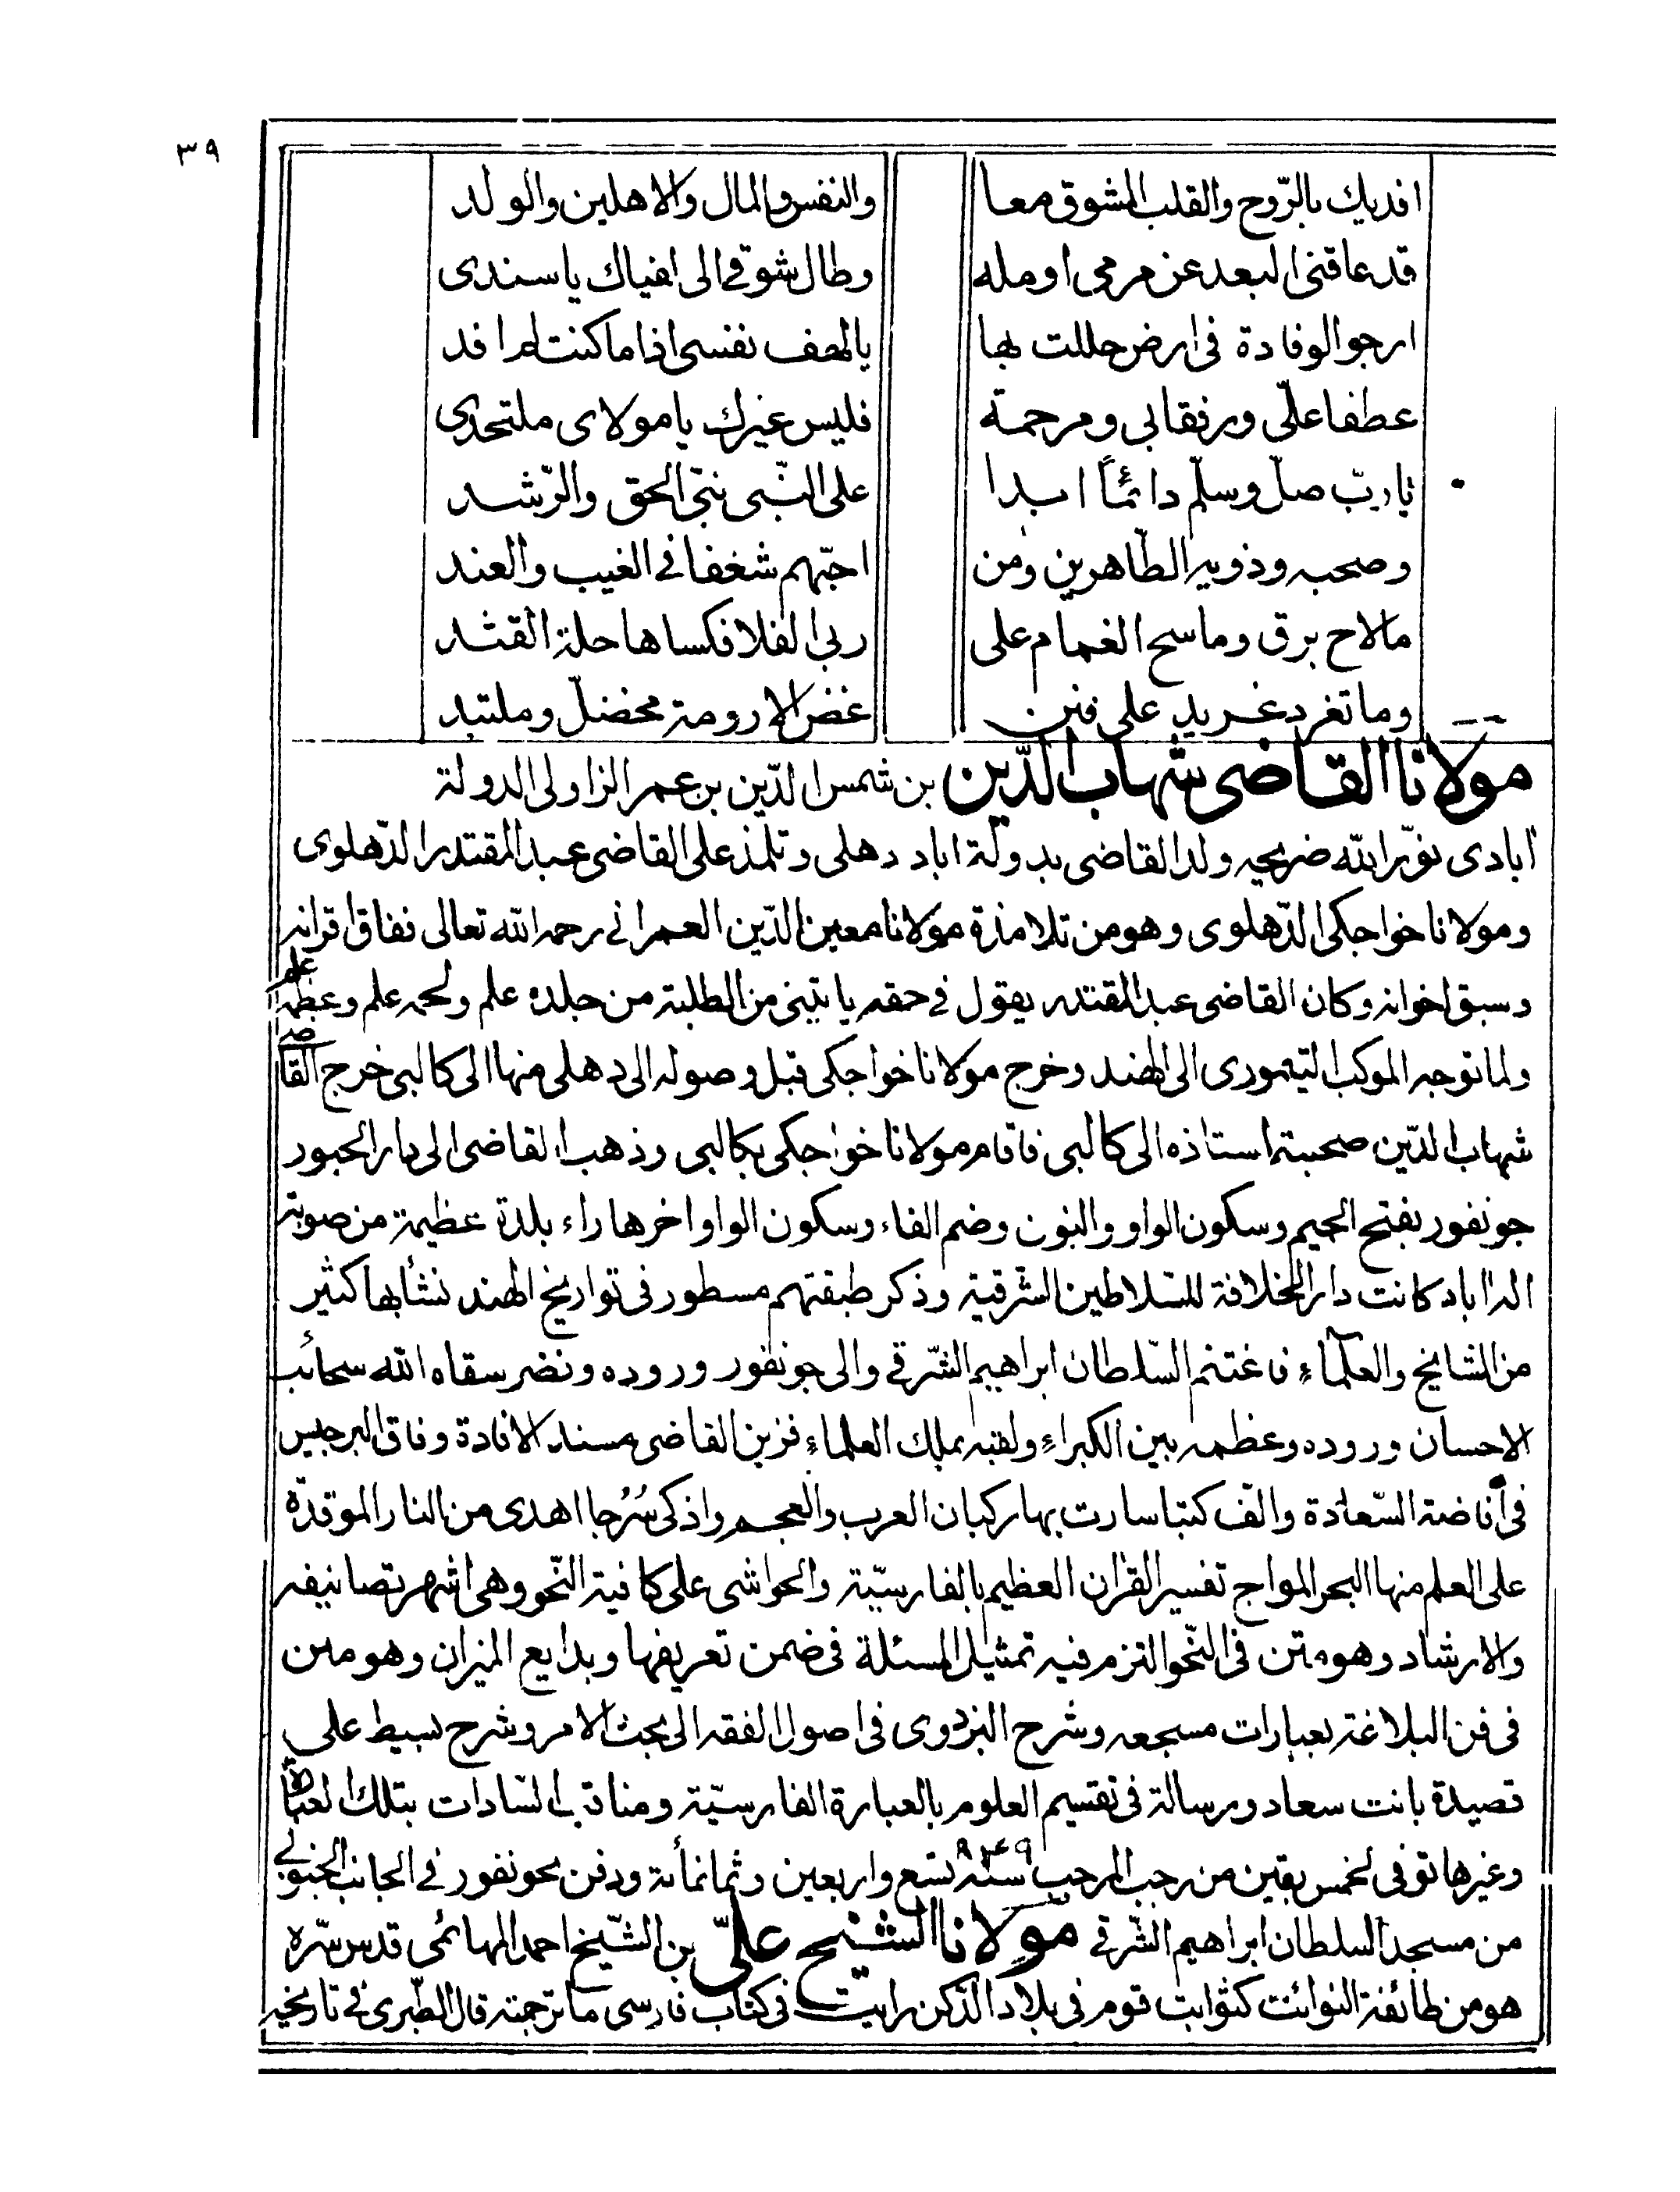 ٣٩
افديك بالرّوح والقلب المشوق معا والنفس والمال والاهلين والولد
قد عاقنى البعد عن مرمى اومله وطال شوقى الى لقياك ياسندى
ارجو الوفادة فى ارض حللت بها يالهف نفسى اذا ماكنت لم افد
عطفا علّى ورفقا بى ومرحمة فليس غيرك يامولاى ملتحدى
يا ربّ صلّ وسلّم دائمًا ابدا على النّبى نبىّ الحق والرّشد
وصحبه وذويه الطّاهرين ومن احبّهم شغفا فى الغيب والعند
مالاح برق وما سح الغمام على ربى الفلا فكساها حلة القثد
وما تغرد غريد على فنن غض الارومة مخضلّ وملتبد
مولانا القاضى شهاب الدّين بن شمس الدّين بن عمر الزاولى الدولة
ابادى نوّر الله ضريحه ولد القاضى بدولة اباد دهلى وتلمذ على القاضى عبد المقتدر الدّهلوى
ومولانا خواجكى الدّهلوى وهو من تلامذة مولانا معين الدّين العمرانى رحمه الله تعالى ففاق اقرانه
وسبق اخوانه وكان القاضى عبد المقتدر يقول فى حقه ياتينى من الطلبة من جلده علم ولحمه علم وعظمه علم
ولما توجه الموكب التيمورى الى الهند وخرج مولانا خواجكى قبل وصوله الى دهلى منها الى كالبى خرج القاضى
شهاب الدّين صحبة استاذه الى كالبى فاقام مولانا خواجكى بكالبى وذهب القاضى الى دار الحبور
جونفور بفتح الجيم وسكون الواو والنون وضم الفاء وسكون الواو اخرها راء بلدة عظيمة من صوبة
اله اباد كانت دار الخلافة للسّلاطين الشّرقية وذكر طبقتهم مسطور فى تواريخ الهند نشأ بها كثير
من المشايخ والعلمآء فاغتنم السّلطان ابراهيم الشّرقى والى جونفور وروده ونضر سقاه الله سحائب
الاحسان وروده وعظمه بين الكبراء ولقبه بملك العلماء فزين القاضى مسند الافادة وفاق البرجيس
فى افاضة السّعادة والّف كتبا سارت بها ركبان العرب والعجم واذكى سُرُجا اهدى من النار الموقدة
على العلم منها البحر المواج تفسير القران العظيم بالفارسيّة والحواشى على كافية النّحو وهى اشهر تصانيفه
والارشاد وهو متن فى النّحو التزم فيه تمثيل المسئلة فى ضمن تعريفها وبدايع الميزان وهو متن
فى فن البلاغة بعبارات مسجعه وشرح البزدوى فى اصول الفقه الى بحث الامر وشرح بسيط على
قصيدة بانت سعاد ورسالة فى تقسيم العلوم بالعبارة الفارسيّة ومناقب السّادات بتلك العبارة
وغيرها توفى لخمس بقين من رجب المرجب سنة ٨٤٩ تسع واربعين وثمانمأته ودفن بجونفور فى الجانب الجنوبى
من مسجد السلطان ابراهيم الشّرقى مولانا الشيخ علىّ بن الشّيخ احمد المهائمى قدس سّره
هو من طائفة النوائت كثوابت قوم فى بلاد الدّكن رايت فى كتاب فارسى ما ترجمته قال الطّبرى فى تاريخه